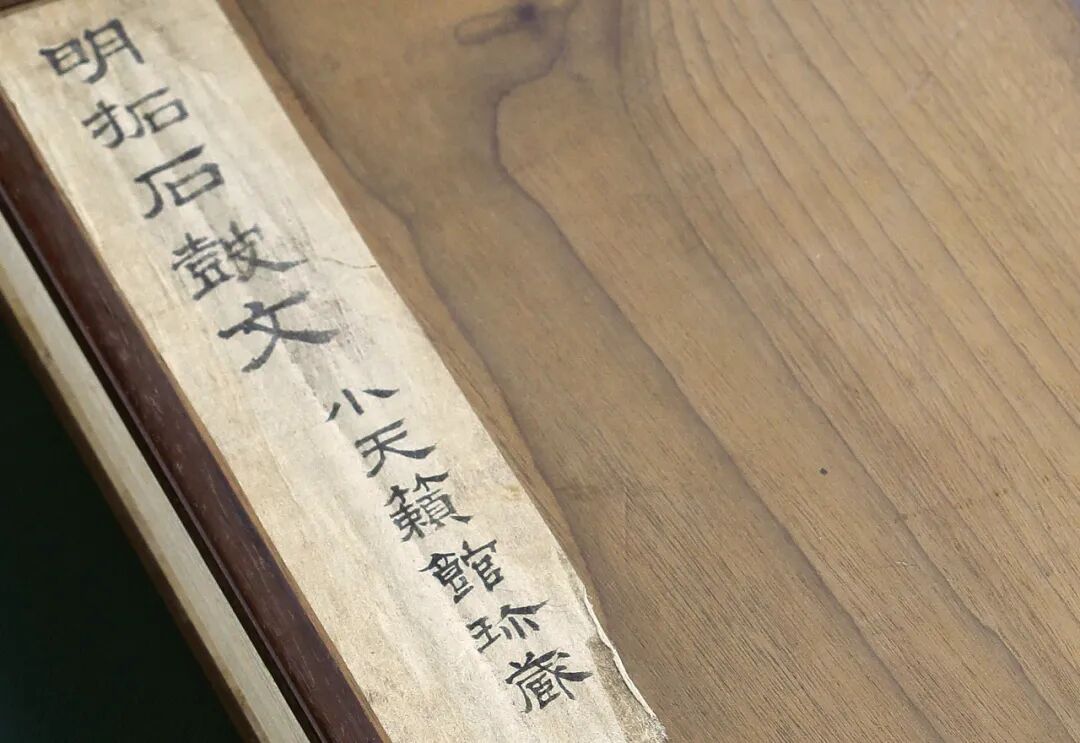 明拓石鼓文 小天籟館珍藏